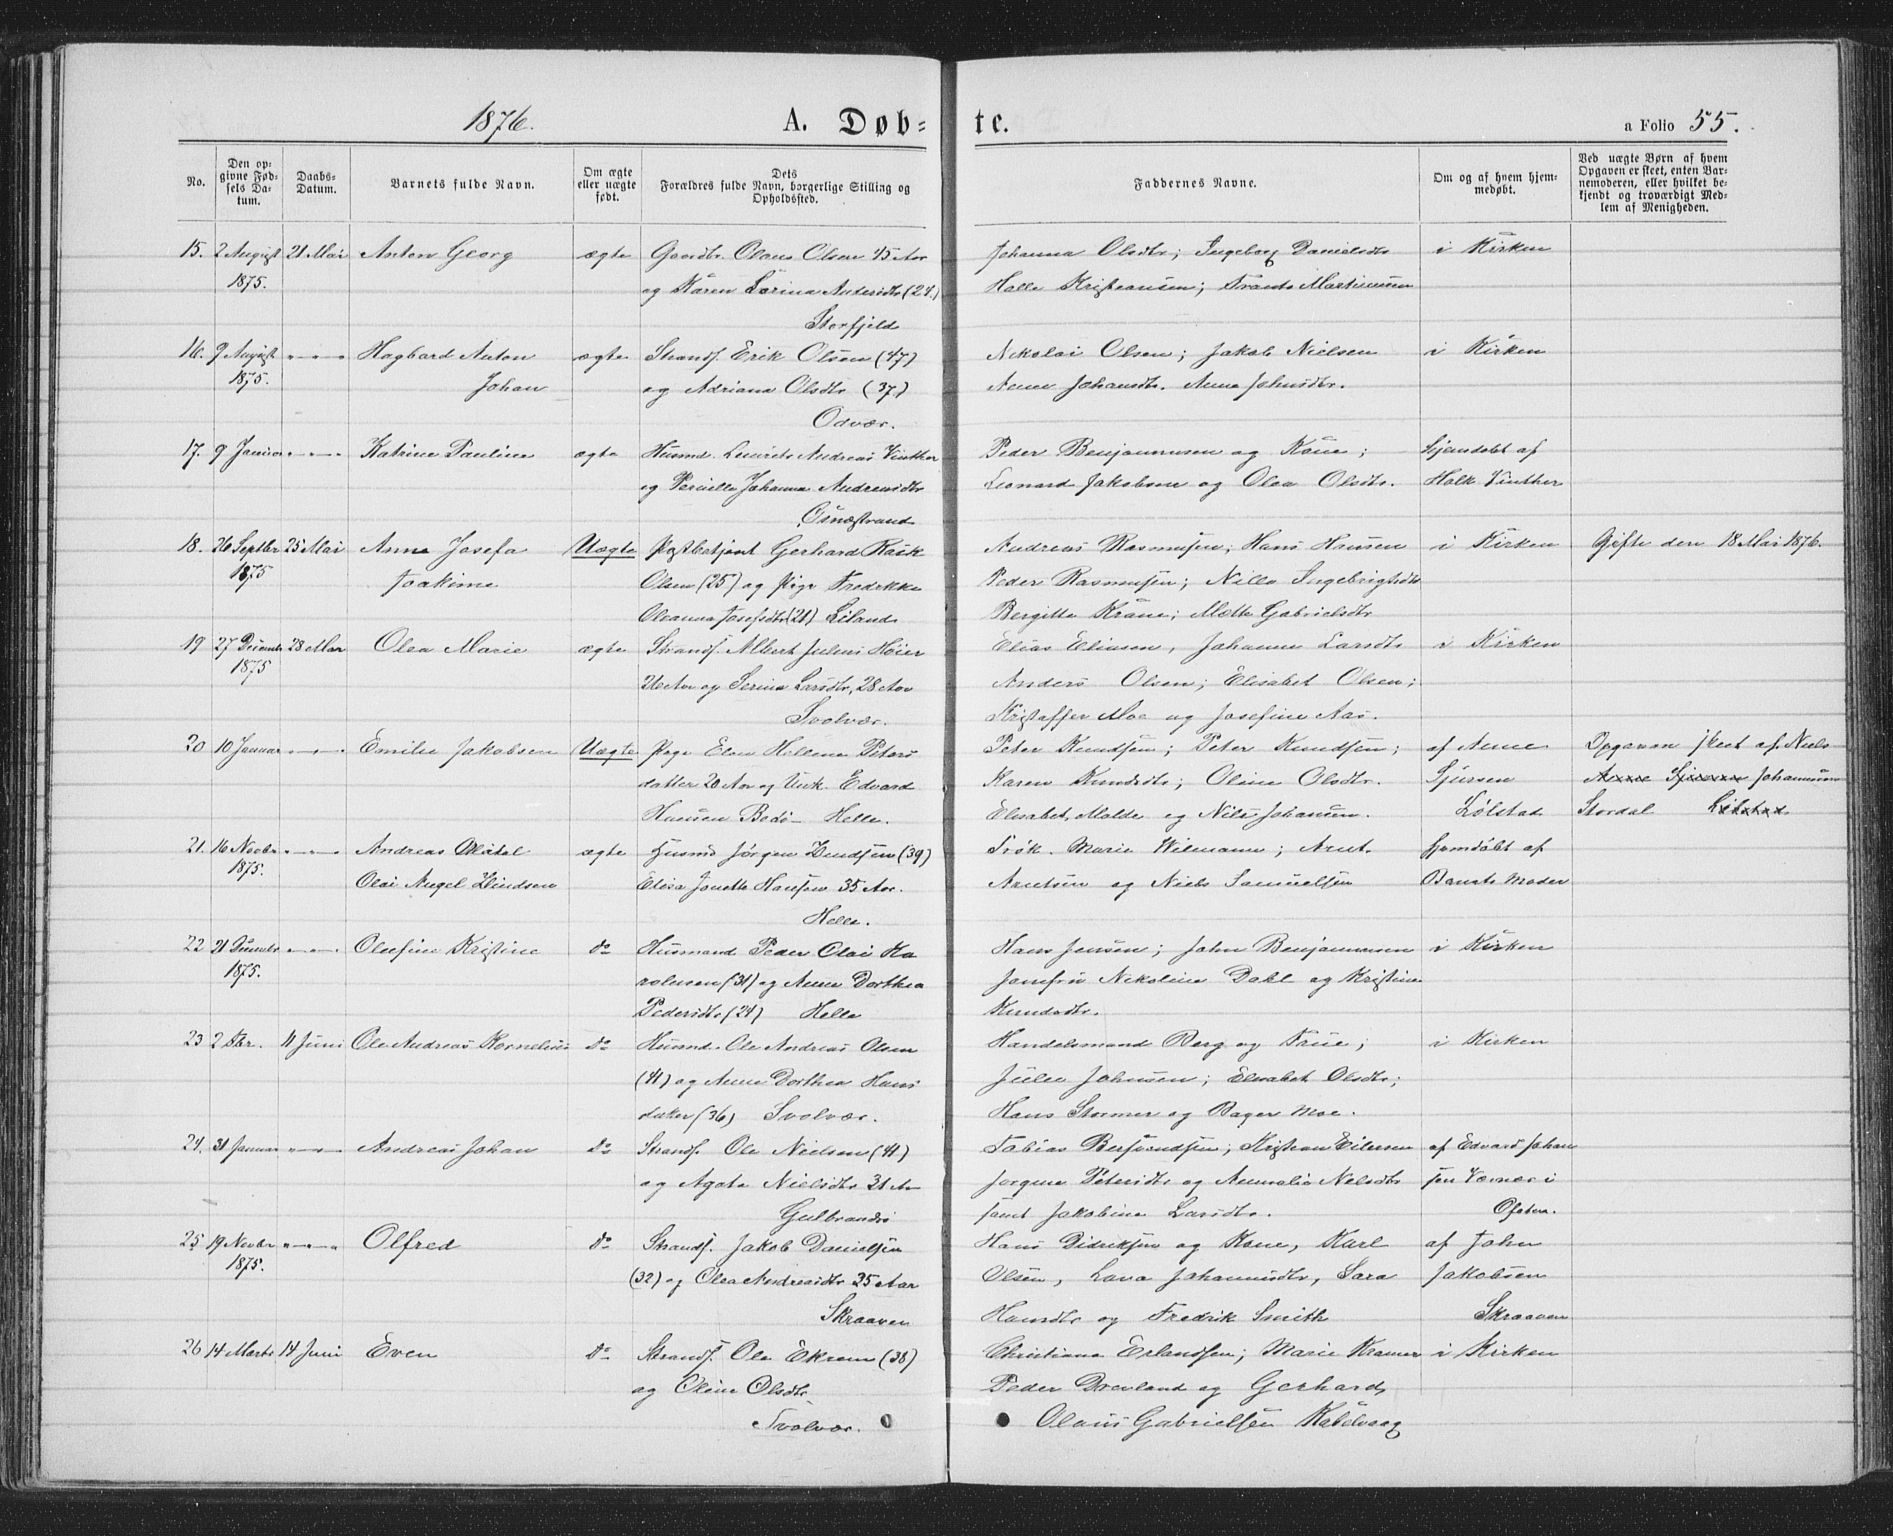 1876.
A. Døb-
te.
a Folio 55.
No.
Den op-
givne Fød-
sels Da-
tum.
Daabs-
Datum.
Barnets fulde Navn.
Om ægte
eller uægte
født.
Dets
Forældres fulde Navn, borgerlige Stilling og
Opholdssted.
Faddernes Navne.
Om og af hvem hjem-
medøbt.
Ved uægte Børn af hvem
Opgaven er skeet, enten Bar-
nemoderen, eller hvilket be-
kjendt og troværdigt Med-
lem af Menigheden.
15. 2 August 21 Mai Anton Georg ægte Gaardbr. Olaus Olsen 45 Aar Johanna Olsdtr; Ingeborg Danielsdtr i Kirken
1875. og Karen Larina Andersdtr (24.) Halle Kristiansen; Martinussen
Storfjeld
16. 9 August " " " Hagbard Anton ægte Strands. Erik Olsen (47) Nikolai Olsen; Jakob Nielsen i Kirken
1875. Johan og Adriana Olsdtr (37) Anne Johansdtr. Anna Johnsdtr.
Odvær.
17. 9 Januar " " " Katrine Pauline ægte Husmd. Andreas Vinther Peder Benjaminsen og Kone; Hjemdøbt af
og Pernille Johanna Andreasdtr Leonard Jakobsen og Olea Olsdtr. Vinther
Osnæstrand
18. 26 Septbr 25 Mai Anna Josefa Uægte Postbetjent Gerhard Olsen Andreas Rasmussen; Hans Hansen i Kirken Gifte den 18 Mai 1876.
1875 Joakime Olsen (25) og Pige Fredrikke Peder Rasmussen; Nille Ingebrigtsdtr
Oleanna Josefsdtr (21) Liland Bergitte Krane; Mette Gabrielsdtr
19 27 Decembr 28 Mai Olea Marie ægte Strands. Albert Julius Høier Elias Eliasen, Johanna Larsdtr i Kirken
1875 26 Aar og Serina Larsdtr, 28 Aar Anders Olsen; Elisabet Olsen;
Svolvær. Kristoffer Moe og Josefine Aas.
20 10 Januar " " " Emilie Jakobsen Uægte Pige Elen Hellena Peters Peter Knudsen; Peter Knudsen; af Anne Opgaven skeet af Niels
datter 20 Aar og Unk. Edvard Karen Knudsdtr; Oline Olsdtr. Sjursen Anne Sjursen Johannesen
Hansen Bodø - Helle. Elisabet Molde og Nils Johansen. Lølstad Stordal
21. 16 Novbr " " " Andreas ægte Husmd Jørgen (39) Frøk. Marie Wilmann; Arnt hjemdøbt af
1875. Olai Angel Elisa Jonette Hansen 35 Aar. Arntsen og Niels Samuelsen Barnets Moder
Helle.
22 21 Decembr " " " Olufine Kristine do Husmand Peder Olai Ka Hans Jensen; John Benjaminsen i Kirken
1875. rolusen (31) og Anne Dorthea Jomfru Nikoline Dahl og Kristine
Pedersdtr (24) Helle Knudsdtr.
23 2 Fbr. 11 Juni Ole Andreas Kornelius do Husmd. Ole Andreas Olsen Handelsmand Berg og Frue; i Kirken
(41) og Anne Dorthea Hans Julie Johnsen; Elisabet Olsdtr;
datter (36) Svolvær. Hans Stormer og Bager Moe.
24. 31 Januar " " " Andreas Johan do Strands. Ole Nielsen (41) Tobias Bersvendsen; Kristian Eilersen af Edvard Johan
og Agata Nielsdtr 31 Aar Jørgine Petersdtr og Nilsdtr sen Værner i
Gulbrandsø samt Jakobine Larsdtr. Ofoten.
25 19 Novbr " " " Olfred do Strands. Jakob Danielsen Hans Didriksen og Kone, Karl af John
1875. (32) og Olea Andreasdtr 35 Aar Olsen, Lava Johannesdtr, Sara Jakobsen
Skraaven Hansdtr og Fredrik Smith Skraaven
26 14 Marts 14 Juni Even do Strands. Ole Ekrem (38) Christiana Erlandsen; Marie Kramer i Kirken
og Oline Olsdtr Peder Drevland og Gerhard
Svolvær. Olaus Gabrielsen Kabelvaag